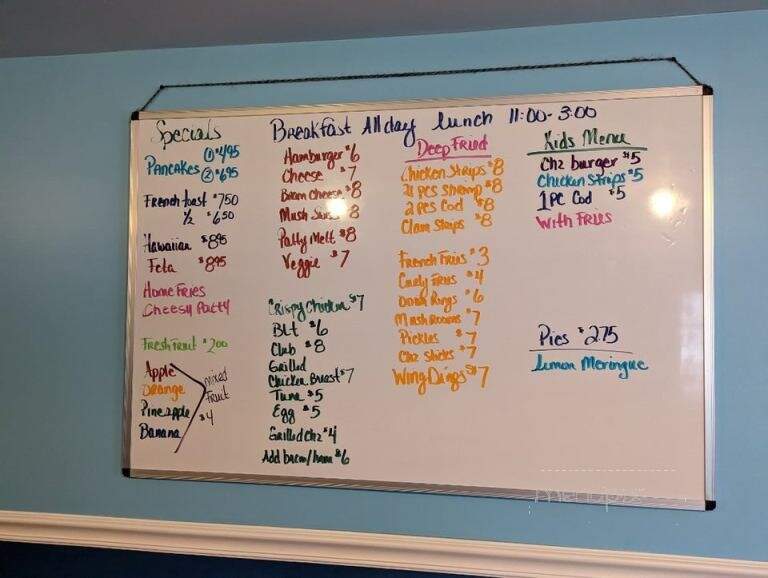 Breakfast All day Lunch 11:00-3:00
Specials
Pancakes ① $4.95
② $6.95
French toast $7.50
1/2 $6.50
Hawaiian $8.95
Feta $8.95
Home Fries
Cheesy Patty
Fresh Fruit $2.00
Apple
Orange
Pineapple
Banana
mixed
Fruit
$4
Hamburger $6
Cheese $7
Bacon Cheese $8
Mush Swiss $8
Patty Melt $8
Veggie $7
Crispy Chicken $7
Blt $6
Club $8
Grilled
Chicken Breast $7
Tuna $5
Egg $5
Grilled Chz $4
Add bacon/ham $6
Deep Fried
Chicken Strips $8
21 pcs shrimp $8
2 pcs Cod $8
Clam Strips $8
French Fries $3
Curly Fries $4
Onion Rings $6
Mushrooms $7
Pickles $7
Chz Sticks $7
Wing Dings $7
Kids Menu
Chz burger $5
Chicken Strips $5
1 PC Cod $5
With Fries
Pies $2.75
Lemon Meringue